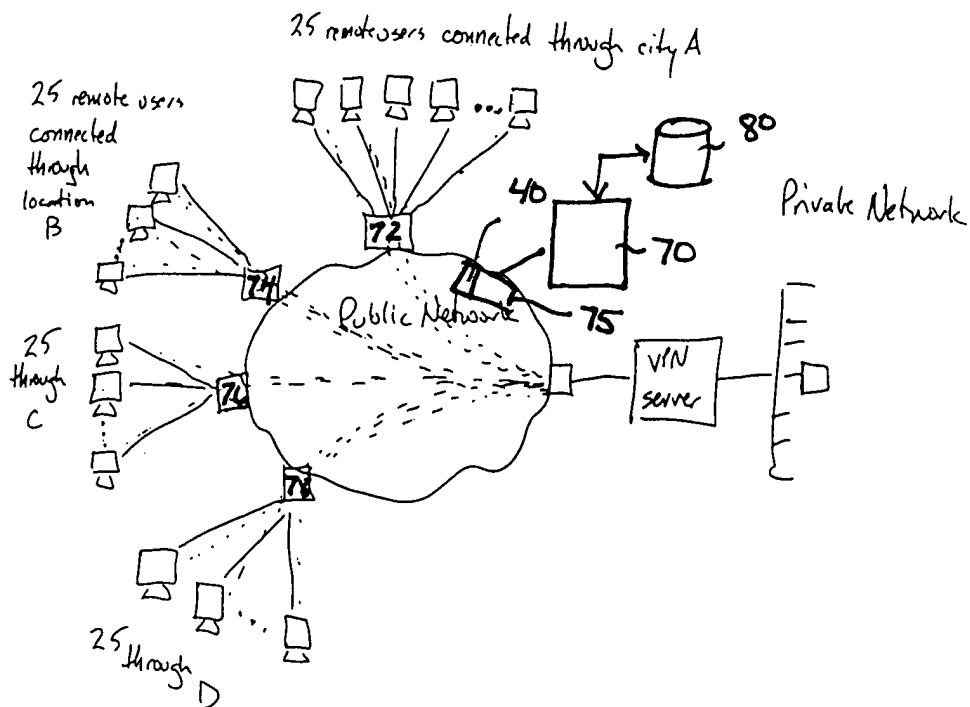 25 remote users connected through city A
25 remote users
connected
through
location
B
80
40
Private Network
72
70
74
Public Network
75
25
through
C
76
VPN
server
78
25 through
D